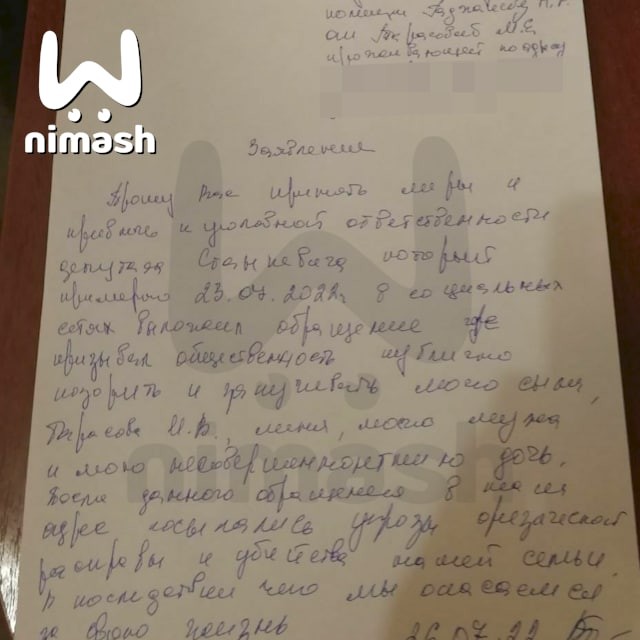 nimash
полиции
от Тарасовой М.С.
проживающей по адресу
Заявление
Прошу вас принять меры и
привлечь к уголовной ответственности
депутата который
примерно 23.07.2022г. в социальных
сетях выложил обращение где
призывал общественность публично
позорить и запугивать моего сына,
Тарасова И.В., меня, моего мужа
и мою несовершеннолетнюю дочь.
После данного обращения в наш
адрес посыпались угрозы физической
расправы и убийства нашей семьи.
В последствии чего мы опасаемся
за свою жизнь 26.07.22
nimash